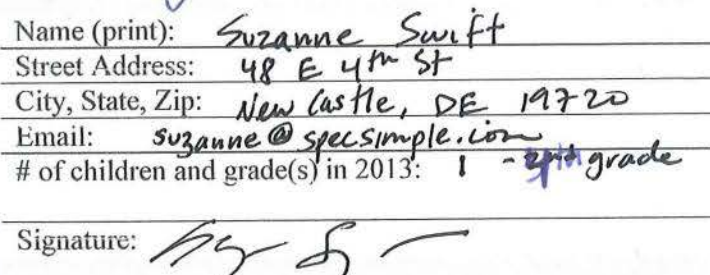 Name (print): Suzanne Swift
Street Address: 48 E 4th St
City, State, Zip: New Castle, DE 19720
Email: suzanne@specsimple.com
# of children and grade(s) in 2013: 1 - grade
Signature: